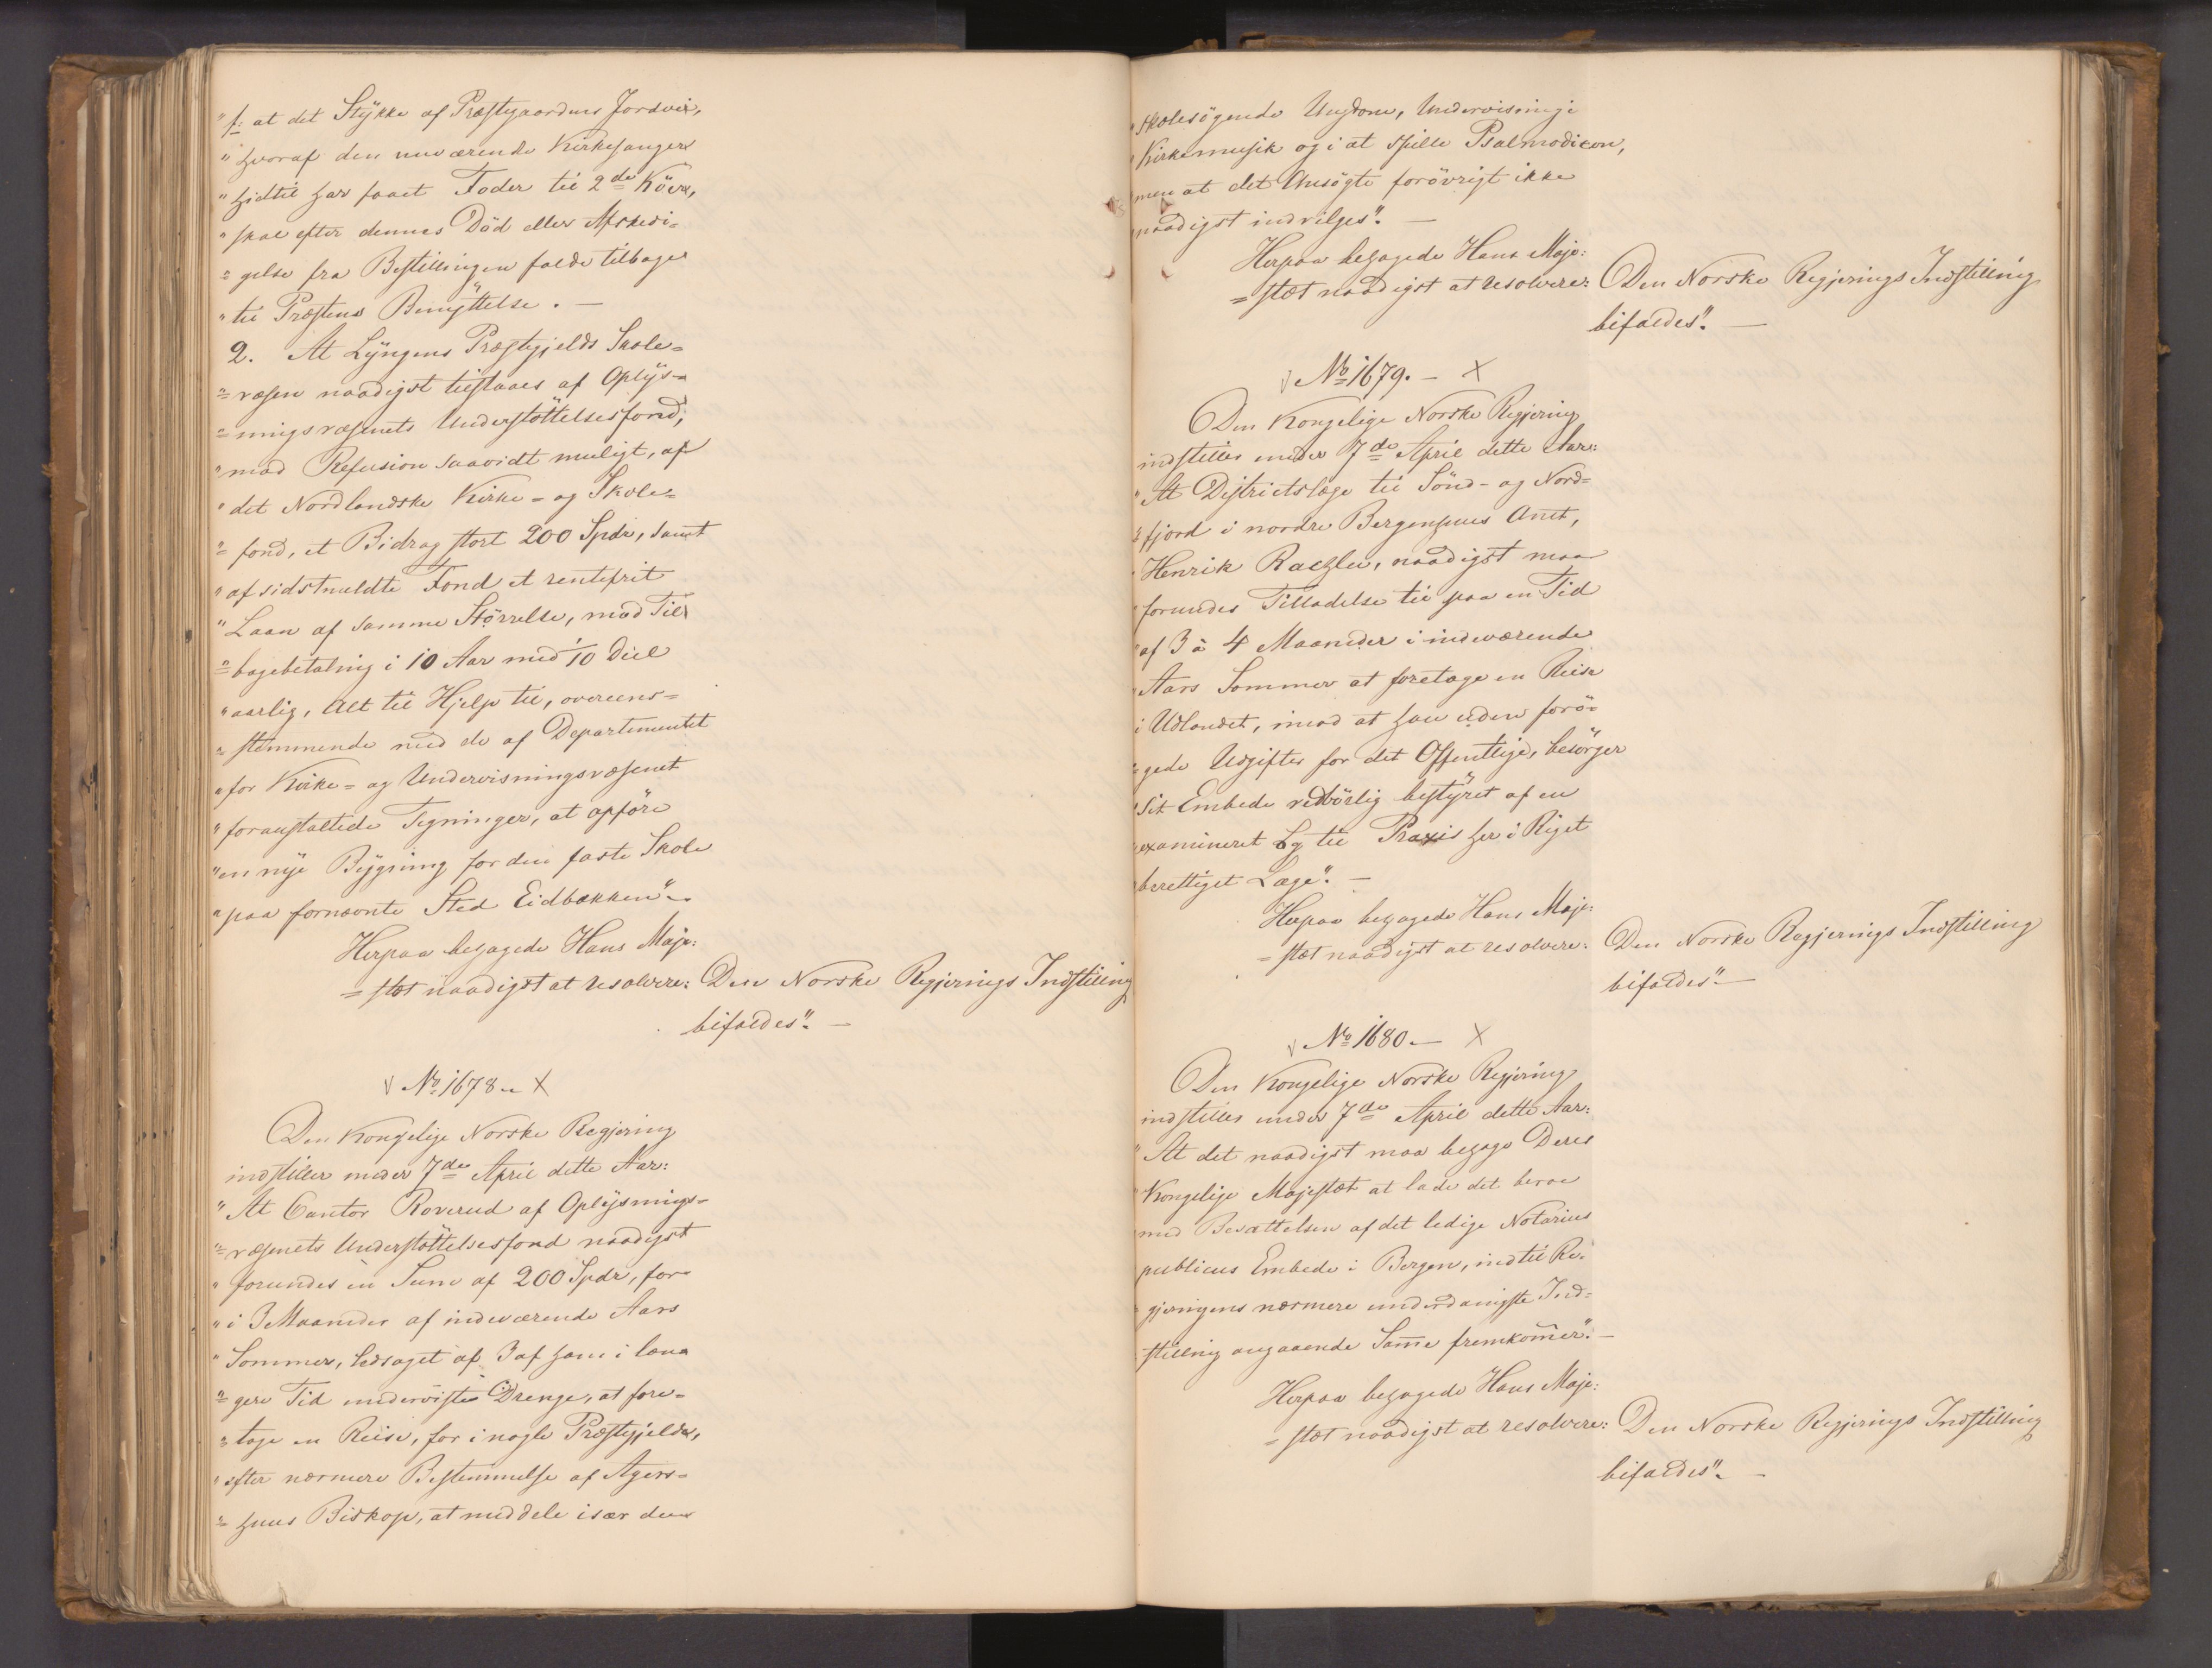 "f: at det Stykke af Præstegaardens Jordvei,
"hvoraf den nuværende Kirkesanger
"hidtil har faaet Foder til 2de Köer,
"skal efter dennes Död eller Afskedi=
"=gelse fra Bestillingen falde tilbage
"til Præstens Benyttelse. —
2. At Lyngens Præstegjelds Skole=
"=væsen naadigst tilstaaes af Oplys=
"=ningsvæsenets Understöttelsesfond,
"mod Refusion saavidt muligt, af
"det Nordlandske Kirke= og Skole=
"=fond, et Bidrag stort 200 Spdr, samt
"af sidstmeldte Fond et rentefrit
"Laan af samme Störrelse, mod Til=
"=bagebetaling i 10 Aar med 1/10 Deel
"aarlig, Alt til Hjelp til, overeens=
"=stemmende med de af Departementet
"for Kirke= og Undervisningsvæsenet
"foranstaltede Tegninger, at opföre
"en nye Bygning for den faste Skole
"paa fornævnte Sted Eidbakken". —
Herpaa behagede Hans Maje=
=stæt naadigst at resolvere: Den Norske Regjerings Indstilling
bifaldes". —
No 1678. X
Den Kongelige Norske Regjering
indstiller under 7de April dette Aar:
"At Cantor Roverud af Oplysnings=
"=væsenets Understöttelsesfond naadigst
"forundes en Sum af 200 Spdr, for
"i 3 Maaneder af indeværende Aars
"Sommer, ledsaget af 3 af ham i læn=
"=gere Tid underviste Drenge, at fore=
"=tage en Reise, for i nogle Præstegjelde,
"efter nærmere Bestemmelse af Agers=
"=huus Biskop, at meddele især den
"skolesögende Ungdom, Undervisning i
"Kirkemusik og i at spille Psalmodicon,
"men at det Ansögte forövrigt ikke
"naadigst indvilges". —
Herpaa behagede Hans Maje=
=stæt naadigst at resolvere: Den Norske Regjerings Indstilling
bifaldes". —
No 1679. — X
Den Kongelige Norske Regjering
indstiller under 7de April dette Aar:
"At Districtslæge til Sönd- og Nord=
"=fjord i nordre Bergenhuus Amt,
"Henrik Raezler, naadigst maa
"forundes Tilladelse til paa en Tid
"af 3 à 4 Maaneder i indeværende
"Aars Sommer at foretage en Reise
"i Udlandet, imod at han uden forö=
"=gede Udgifter for det Offentlige, besörger
"Sit Embede vedbörlig bestyret af en
"examineret og til Praxis her i Riget
"berettiget Læge". —
Herpaa behagede Hans Maje=
=stæt naadigst at resolvere: Den Norske Regjerings Indstilling
bifaldes" —
No 1680. — X
Den Kongelige Norske Regjering
indstiller under 7de April dette Aar:
"At det naadigst maa behage Deres
"Kongelige Majestæt at lade det beroe
"med Besættelsen af det ledige Notarius
"publicus Embede i Bergen, indtil Re=
"=gjeringens nærmere underdanigste Ind=
"stilling angaaende Sam̄e fremkom̄er". —
Herpaa behagede Hans Maje=
=stæt naadigst at resolvere: Den Norske Regjerings Indstilling
bifaldes". —